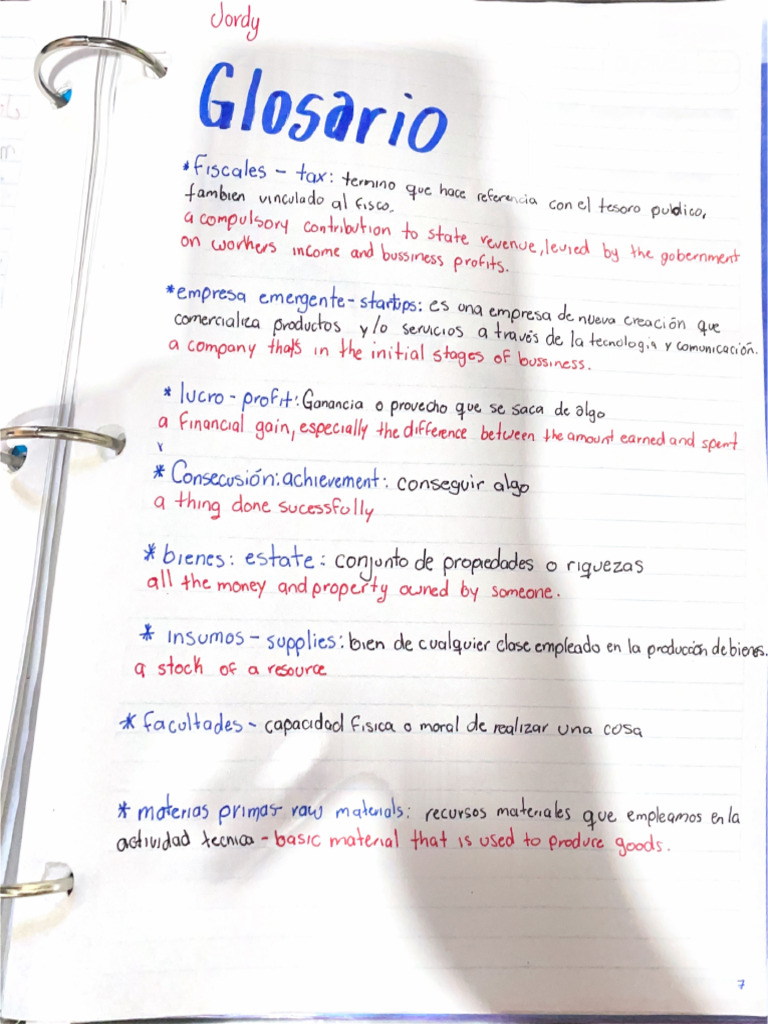 Jordy
Glosario
*Fiscales - tax: termino que hace referencia con el tesoro publico,
tambien vinculado al fisco.
a compulsory contribution to state revenue, levied by the gobernment
on workers income and bussiness profits.
*empresa emergente-startups: es una empresa de nueva creación que
comercializa productos y/o servicios a través de la tecnologia y comunicación.
a company that's in the initial stages of bussiness.
* lucro - profit: Ganancia o provecho que se saca de algo
a financial gain, especially the difference between the amount earned and spent
* Consecusión: achievement: conseguir algo
a thing done sucessfully
* bienes: estate: conjunto de propiedades o riquezas
all the money and property owned by someone.
* insumos - supplies: bien de cualquier clase empleado en la producción de bienes.
a stock of a resource
* facultades - capacidad fisica o moral de realizar una cosa
* materias primas raw materials: recursos materiales que empleamos en la
actividad tecnica - basic material that is used to produce goods.
7